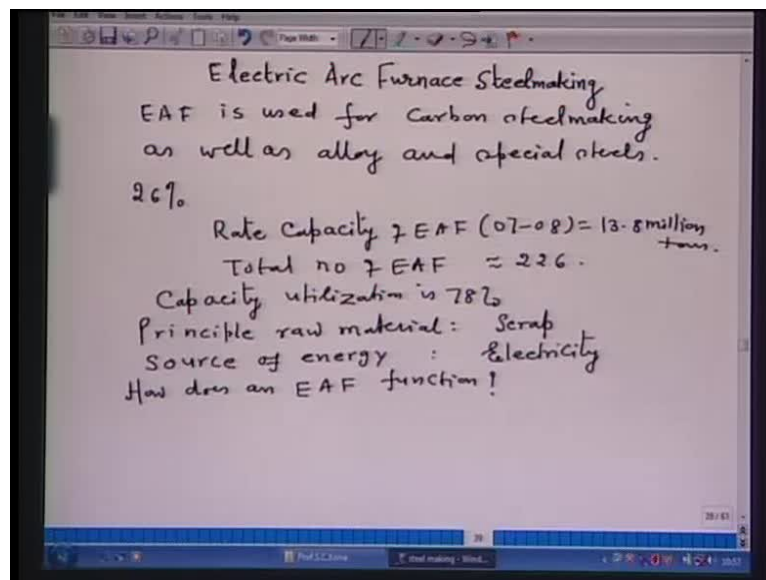 File Edit View Insert Actions Tools Help
Page Width
Electric Arc Furnace Steelmaking
EAF is used for Carbon steelmaking
as well as alloy and special steels.
26%
Rate Capacity of EAF (07-08) = 13.8 million
tons.
Total no of EAF ≈ 226.
Capacity utilization is 78%
Principle raw material : Scrap
Source of energy : Electricity
How does an EAF function!
39
Prof S.C.Koria
steel making - Wind...
10:57